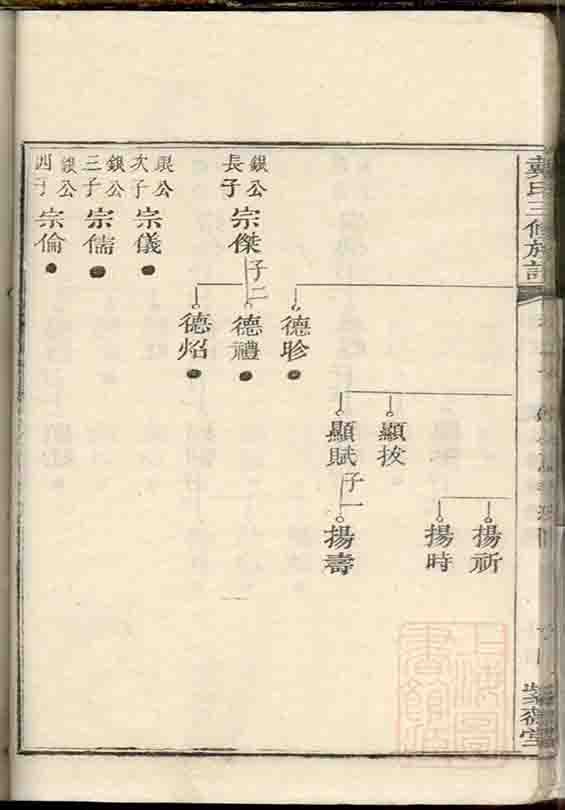 戴氏三修族譜
揚祈
揚時
顯拔
顯賦
子一
揚壽
德昣
銀公長子
宗傑
子二
德禮
德炤
銀公次子
宗儀
銀公三子
宗儒
銀公四子
宗倫